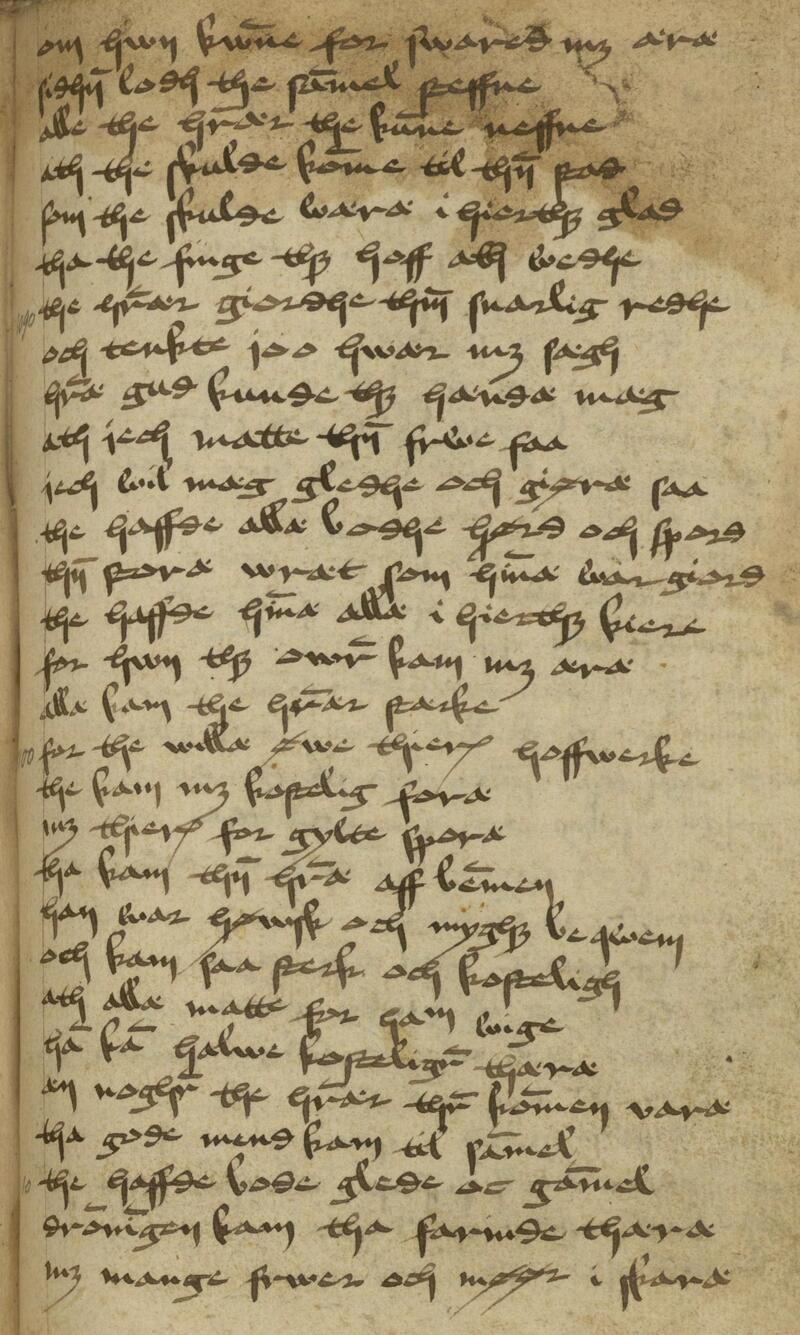 om hwn kwn̄e for swared mꝫ æræ
sidhn̄ lodh the sam̄el steffne
alle the hr̄ær the kun̄e neffne
ath the skulde kom̄e til thn̄ stad
som the skulde wæræ i hierthꝫ glad
tha the finge thꝫ hoff ath wedhe
the hr̄ær giordhe thm̄ snarlig redhe
och tenkte joo hwær mꝫ sægh
hr̄æ gud kunde thꝫ hændæ mæg
ath jech matte thn̄ frwe faa
jech wil mæg gledhe och gøræ saa
the haffde allæ bodhe hørd och spord
thn̄ storæ wræt som hn̄næ war giord
the haffde hn̄næ allæ i hierthꝫ kiere
for hwn thꝫ owr̄ kam mꝫ æræ
allæ kam the hr̄ær stærke
for the willæ øwe thieræ hoffwerke
the kam mꝫ kostelig foræ
mꝫ thieræ for gylte sporæ
tha kam thn̄ hr̄æ aff bem̄en
han war høwisk och myghꝫ beqwem
och kam saa sterk och kosteligh
ath allæ matte for ham wige
ha̅ ka̅ halwe kosteligr̄ thæræ
æn noghr̄ the hr̄ær thr̄ kom̄en varæ
tha gode mend kam til sam̄el
the haffde bode glede oc gam̄el
dron̄i̅gen kam tha farinde thæræ
mꝫ mange frwer och møør i skaræ